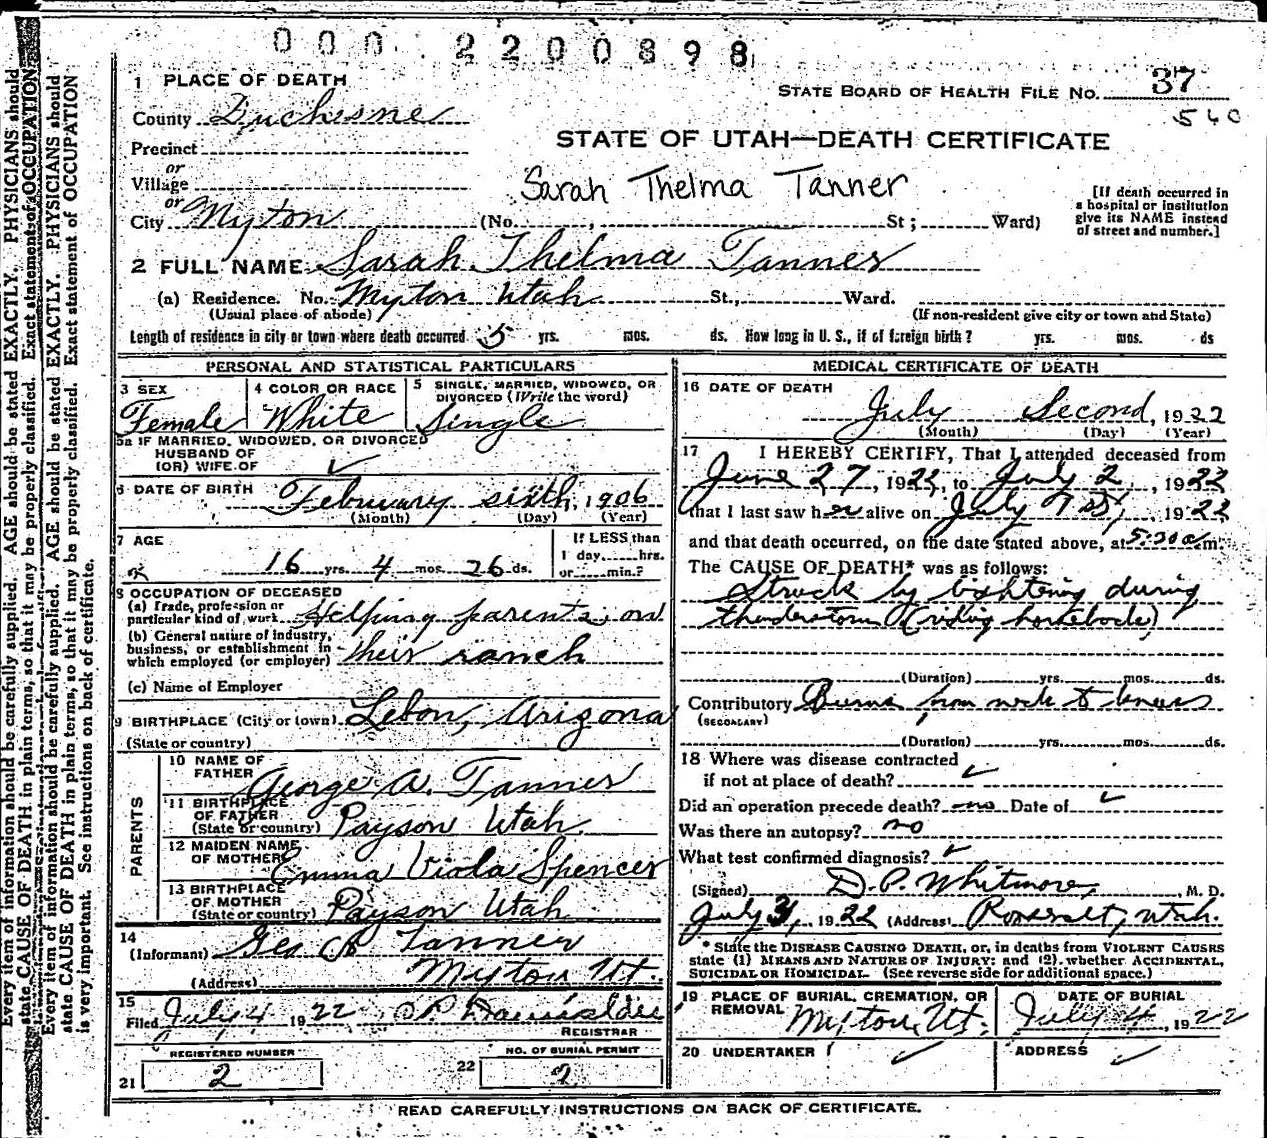 000 2200898
1 PLACE OF DEATH
STATE BOARD OF HEALTH FILE NO. 37
560
County Duchesne
STATE OF UTAH—DEATH CERTIFICATE
Precinct
or
Village
Sarah Thelma Tanner
[If death occurred in a hospital or institution give its NAME instead of street and number.]
or
City Myton (No. , St; Ward)
2 FULL NAME Sarah Thelma Tanner
(a) Residence. No. Myton Utah St., Ward.
(Usual place of abode) (If non-resident give city or town and State)
Length of residence in city or town where death occurred 5 yrs. mos. ds. How long in U. S., if of foreign birth? yrs. mos. ds
PERSONAL AND STATISTICAL PARTICULARS
3 SEX Female
4 COLOR OR RACE White
5 SINGLE, MARRIED, WIDOWED, OR DIVORCED (Write the word) Single
5a IF MARRIED, WIDOWED, OR DIVORCED
HUSBAND OF
(OR) WIFE OF ✓
6 DATE OF BIRTH February sixth, 1906
(Month) (Day) (Year)
7 AGE
16 yrs. 4 mos. 26 ds.
If LESS than
1 day, hrs.
or min.?
8 OCCUPATION OF DECEASED
(a) Trade, profession or particular kind of work Helping parents on
(b) General nature of industry, business, or establishment in which employed (or employer) their ranch
(c) Name of Employer
9 BIRTHPLACE (City or town) Lebon, Arizona
(State or country)
PARENTS
10 NAME OF FATHER George A. Tanner
11 BIRTHPLACE OF FATHER (State or country) Payson Utah
12 MAIDEN NAME OF MOTHER Emma Viola Spencer
13 BIRTHPLACE OF MOTHER (State or country) Payson Utah
14
(Informant) Geo A Tanner
(Address) Myton Ut.
15
Filed July 4 1922
REGISTRAR
REGISTERED NUMBER
21 2
NO. OF BURIAL PERMIT
22 2
MEDICAL CERTIFICATE OF DEATH
16 DATE OF DEATH
July Second, 1922
(Month) (Day) (Year)
17 I HEREBY CERTIFY, That I attended deceased from
June 27, 1922, to July 2, 1922
that I last saw her alive on July 1st, 1922
and that death occurred, on the date stated above, at 5:30 a m.
The CAUSE OF DEATH* was as follows:
Struck by lightening during
thunderstorm (riding horseback)
(Duration) yrs. mos. ds.
Contributory Burns from neck to knees
(SECONDARY)
(Duration) yrs. mos. ds.
18 Where was disease contracted
if not at place of death? ✓
Did an operation precede death? no Date of ✓
Was there an autopsy? no
What test confirmed diagnosis? ✓
(Signed) D. P. Whitmore, M. D.
July 3, 1922 (Address) Roosevelt, Utah.
* State the DISEASE CAUSING DEATH, or, in deaths from VIOLENT CAUSES
state (1) MEANS AND NATURE OF INJURY; and (2) whether ACCIDENTAL,
SUICIDAL OR HOMICIDAL. (See reverse side for additional space.)
19 PLACE OF BURIAL, CREMATION, OR REMOVAL Myton, Ut.
DATE OF BURIAL
July 4, 1922
20 UNDERTAKER ✓
ADDRESS ✓
READ CAREFULLY INSTRUCTIONS ON BACK OF CERTIFICATE.
Every item of information should be carefully supplied. AGE should be stated EXACTLY. PHYSICIANS should
state CAUSE OF DEATH in plain terms, so that it may be properly classified. Exact statement of OCCUPATION
Every item of information should be carefully supplied. AGE should be stated EXACTLY. PHYSICIANS should
state CAUSE OF DEATH in plain terms, so that it may be properly classified. Exact statement of OCCUPATION
is very important. See instructions on back of certificate.